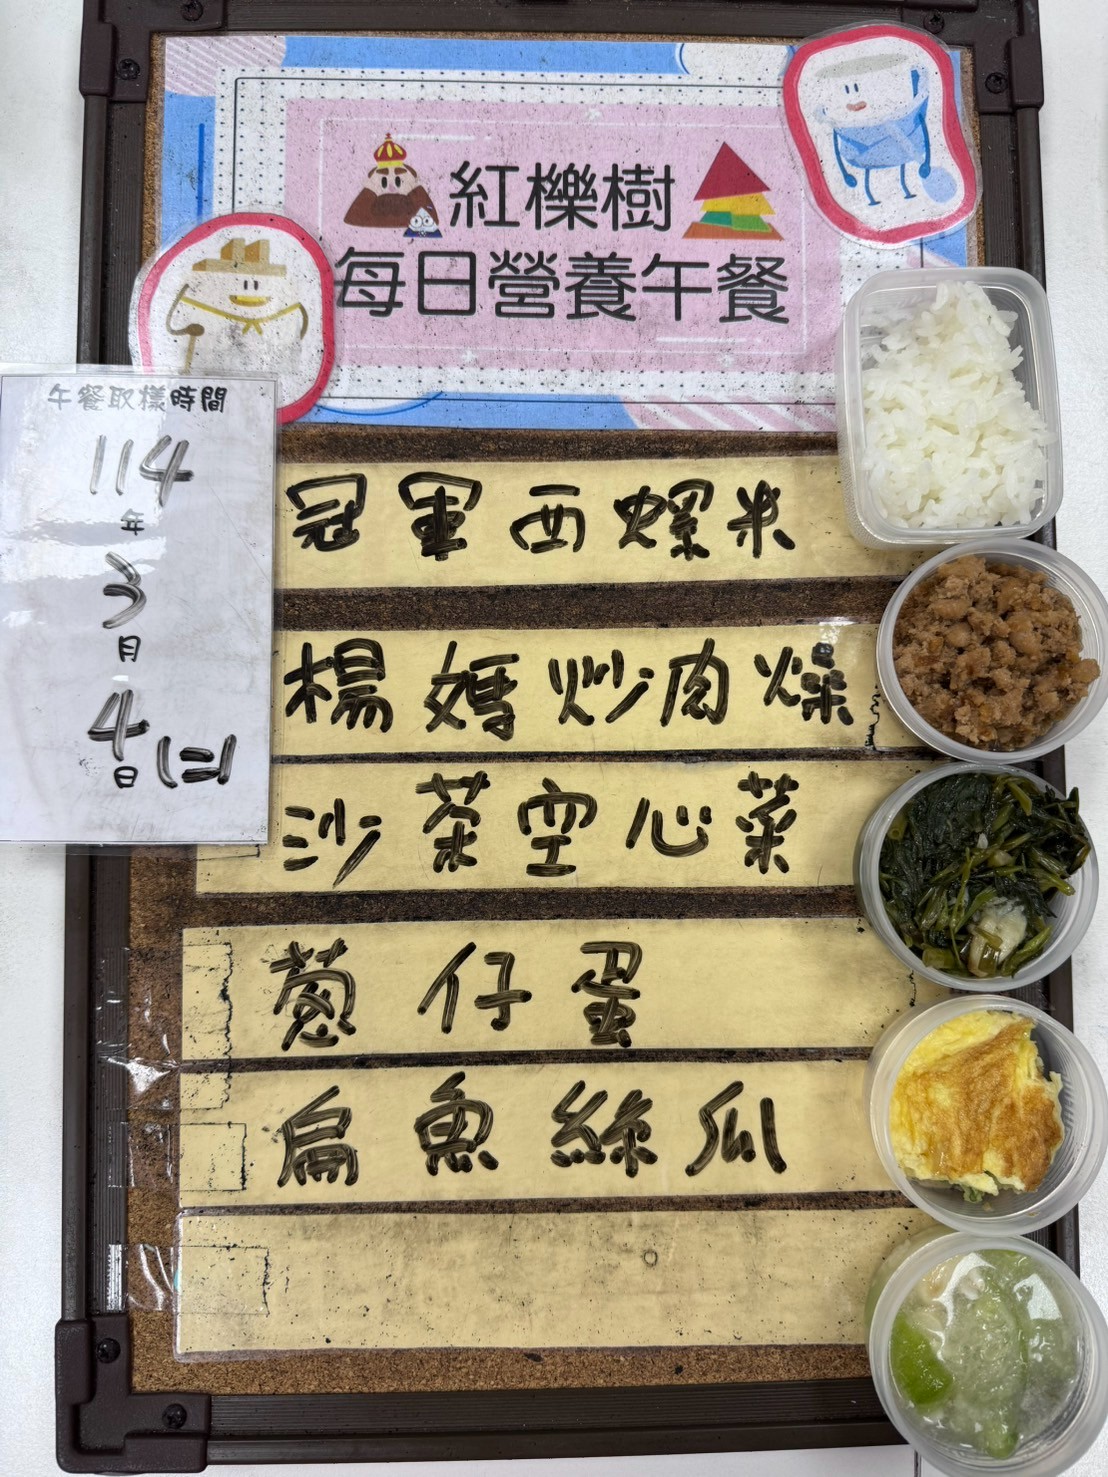 紅櫟樹
每日營養午餐
午餐取樣時間
114
年
3
月
4
日 (二)
冠軍西螺米
楊媽炒肉燥
沙茶空心菜
蔥仔蛋
扁魚絲瓜